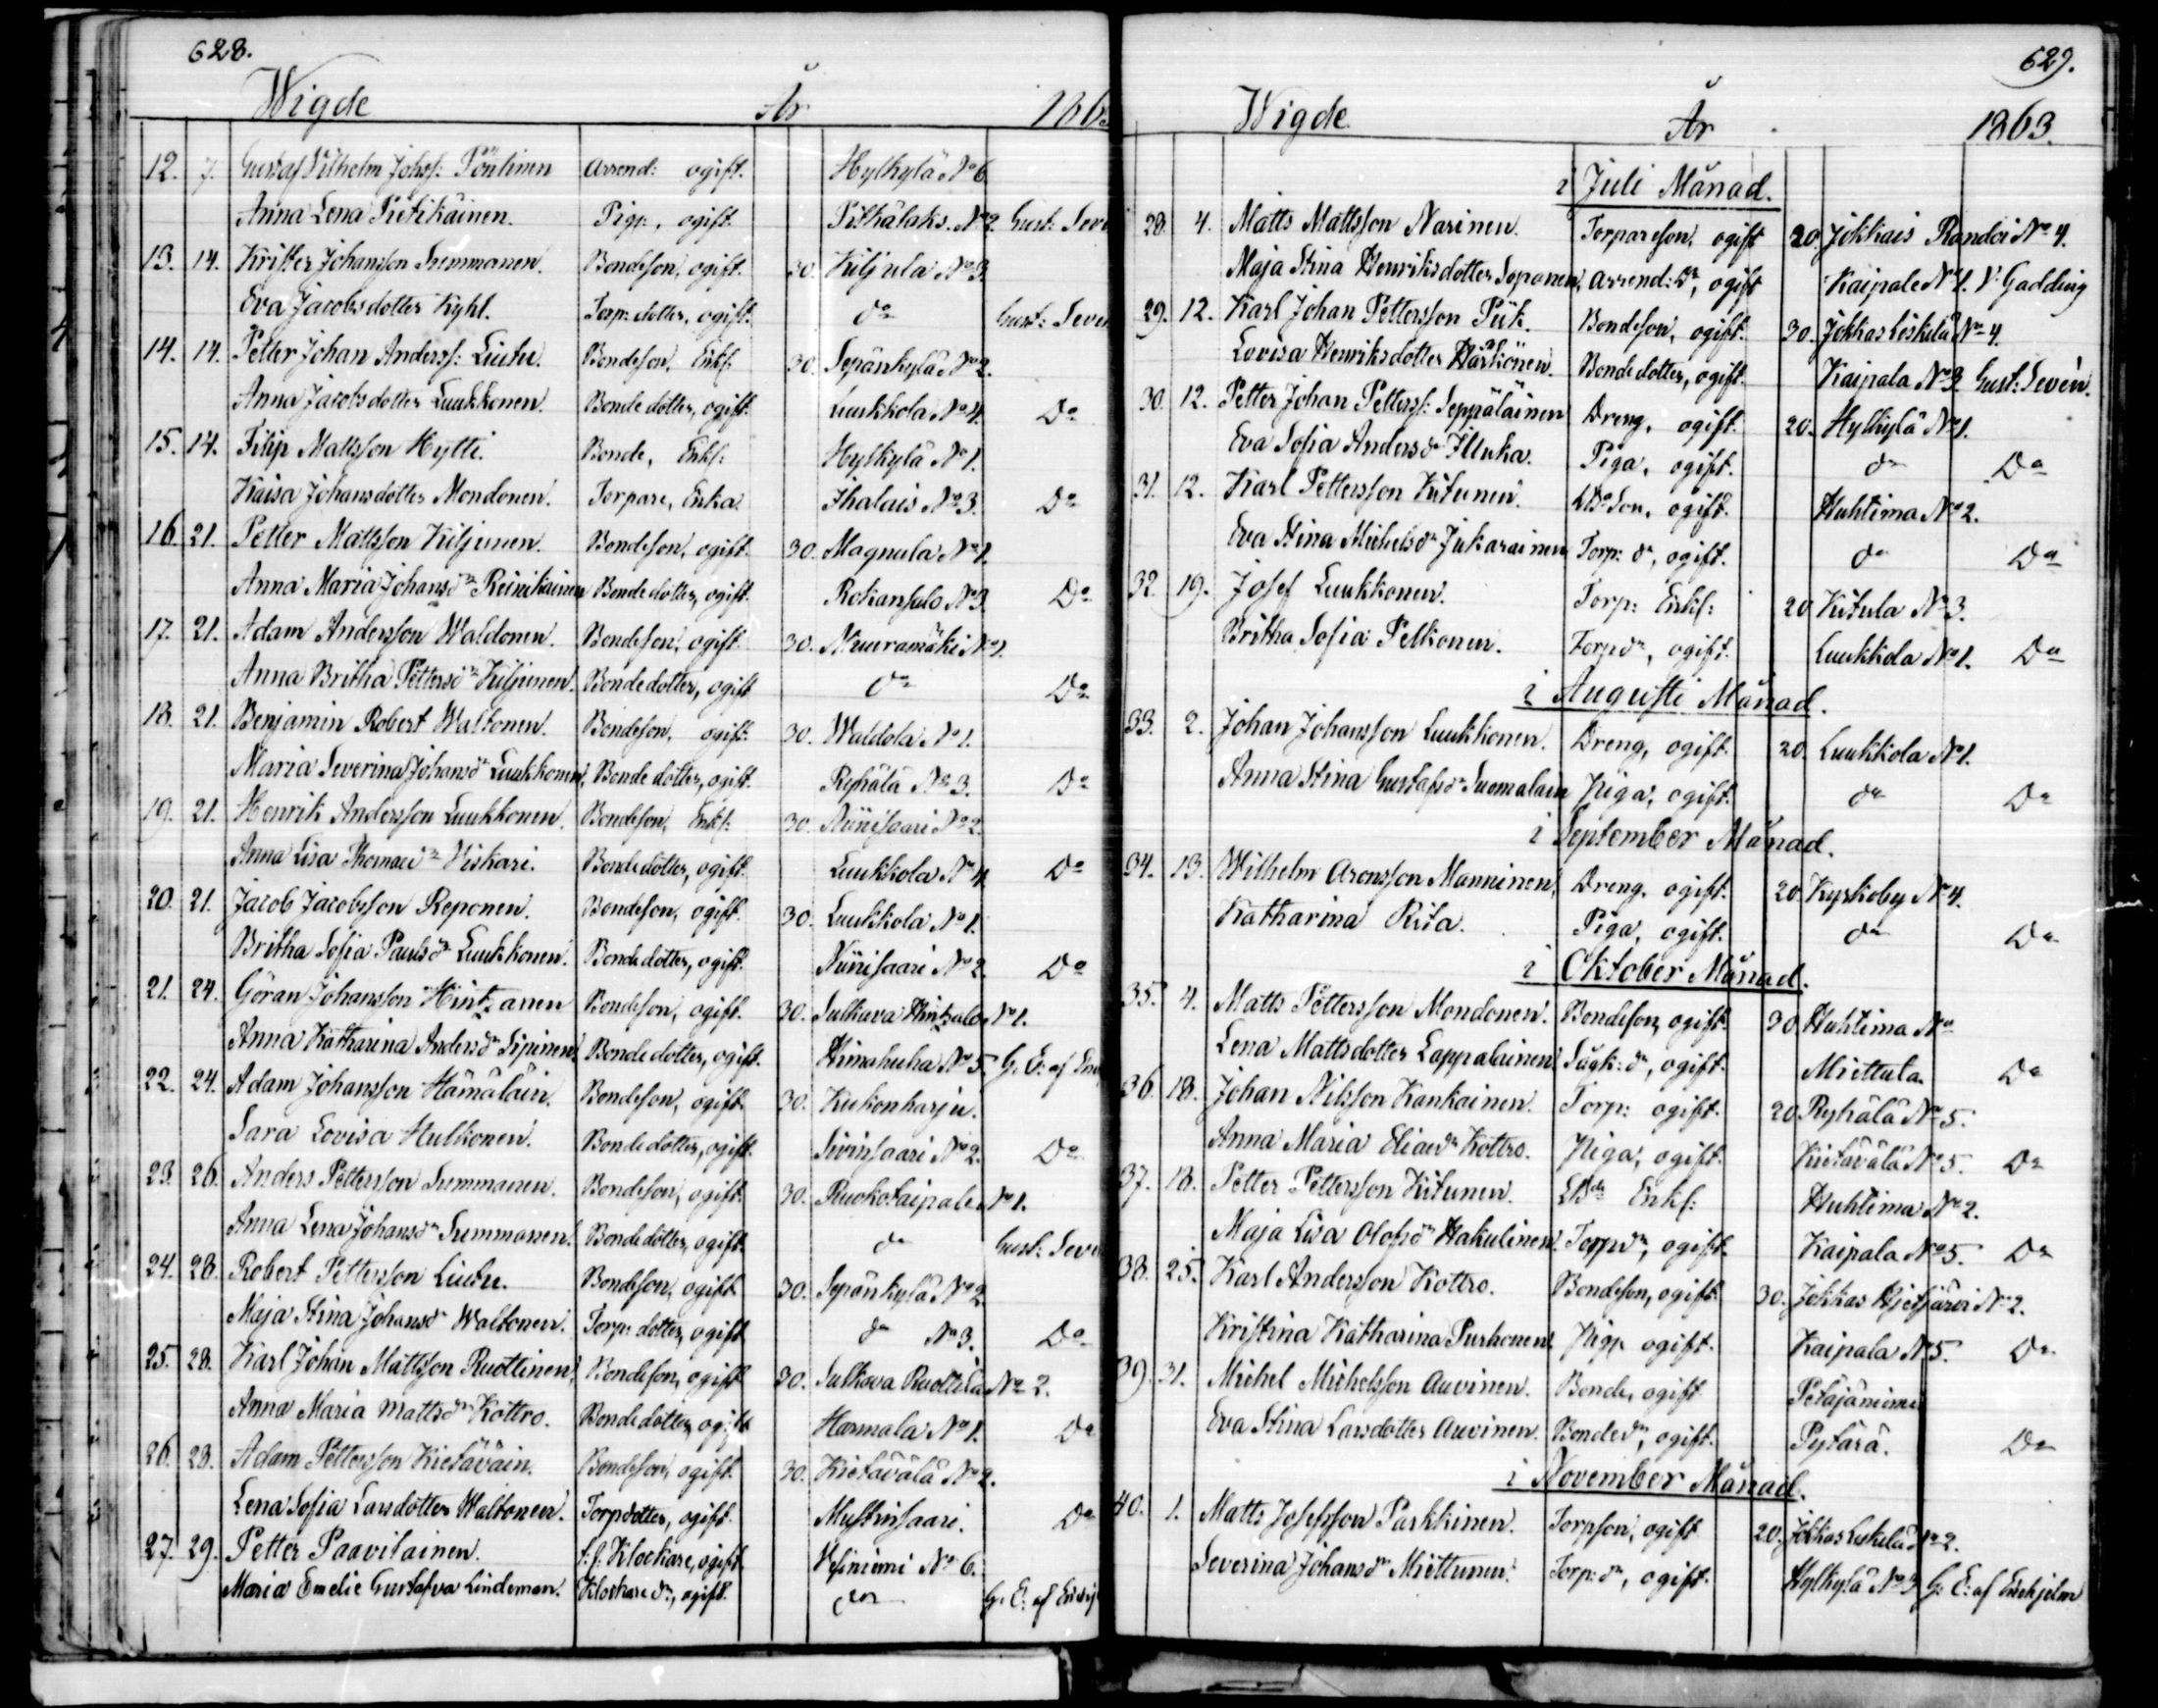 628.
Wigde År 186
12. 7. Gustaf Vilhelm Johsf: Pöntinen Arrend: ogift. Hylkylä No 6
Anna Lena Pietikäinen. Pig:, ogift. Pitkälaks. No 2. Gust: Seve
13. 14. Krister Johansson Summanen. Bondeson, ogift. 30. Kiljula No 3.
Eva Jacobsdotter Kyhl. Torp: dotter, ogift. do Gust: Seve
14. 14. Petter Johan Anderss: Liuhu. Bondeson, Enkl: 30. Sepänkylä No 2.
Anna Jacobsdotter Luukkonen. Bondedotter, ogift. Luukkola No 4. Do
15. 14. Filip Mattsson Hytti. Bonde, Enkl: Hylkylä No 1.
Kaisa Johansdotter Mondonen. Torpare, Enka. Ihalais No 3. Do
16. 21. Petter Mattsson Kiljunen. Bondeson, ogift. 30. Magnula No 1.
Anna Maria Johansdr Reinikainen Bondedotter, ogift. Rokansalo No 3. Do
17. 21. Adam Andersson Waldonen. Bondeson, ogift. 30. No 1.
Anna Britha Pettersdr Kiljunen. Bondedotter, ogift do Do
18. 21. Benjamin Robert Waltonen. Bondeson, ogift. 30. Waldola No 1.
Maria Severina Johansdr Luukkonen, Bondedotter, ogift. Ryhälä No 3. Do
19. 21. Henrik Andersson Luukkonen. Bondeson, Enkl: 30. Niinisaari No 2.
Anna Lisa Thomaedr Viskari. Bondedotter, ogift. Luukkola No 4. Do
20. 21. Jacob Jacobsson Reponen. Bondeson, ogift. 30. Luukkola No 1.
Britha Sofia Paulsdr Luukkonen. Bondedotter, ogift. Niinisaari No 2. Do
21. 24. Göran Johansson Hintzanen Bondeson, ogift. 30. Sulkava Hintzala No 1.
Anna Katharina Andersdr Sipinen. Bondedotter, ogift. No 5. G. E: af
22. 24. Adam Johansson Hämäläin. Bondeson, ogift. 30. Kukonharju.
Sara Lovisa Hulkonen. Bondedotter, ogift. Sivinsaari No 2. Do
23. 26. Anders Pettersson Summanen. Bondeson, ogift. 30. Ruokotaipale No 1.
Anna Lena Johansdr Summanen. Bondedotter, ogift. do Gust: Seve
24. 28. Robert Pettersson Liuhu. Bondeson, ogift. 30. Sepänkylä No 2.
Maja Stina Johansdr Waltonen. Torp: dotter, ogift do No 3. Do
25. 28. Karl Johan Mattsson Ruottinen, Bondeson, ogift 30. Sulkava Ruottila No 2.
Anna Maria Mattsdr Kottro. Bondedotter, ogift Harmala No 1. Do
26. 28. Adam Pettersson Kietäväin. Bondeson, ogift. 30. Kietävälä No 2.
Lena Sofia Larsdotter Waltonen. Torpdotter, ogift. Mustinsaari. Do
27. 29. Petter Paavilainen. f:f. Klockare, ogift. Vesiniemi No 6.
Maria Emelie Gustafva Lindeman. Klockaredr, ogift. do G. E: af
629.
Wigde År 1863.
i Juli Månad.
28. 4. Matts Mattsson Narinen. Torpareson, ogift 20. Jokkais No 4.
Maja Stina Henriksdotter Soponen, Arrend: dr, ogift Kaipale No 1. V: Gadding
29. 12. Karl Johan Pettersson Piik. Bondeson, ogift. 30. Jokkas No 4.
Lovisa Henriksdotter Härkönen. Bondedotter, ogift. Kaipala No 3. Gust: Sevén.
30. 12. Petter Johan Petterss: Seppäläinen Dreng, ogift. 20. Hylkylä No 1.
Eva Sofia Andersdr Illuka. Piga, ogift. do Do
31. 12. Karl Pettersson Kitunen. Son, ogift. Huhtima No 2.
Eva Stina Michelsdr Jukarainen Torp: dr, ogift. do Do
32. 19. Josef Luukkonen. Torp: Enkl: 20. Kitula No 3.
Britha Sofia Pelkonen. Torpdr, ogift. Luukkola No 1. Do
i Augusti Månad.
33. 2. Johan Johansson Luukkonen. Dreng, ogift. 20. Luukkola No 1.
Anna Stina Gustafsdr Suomalain Piga, ogift. do Do
i September Månad.
34. 13. Wilhelm Aronsson Manninen, Dreng, ogift. 20. Kyrkoby No 4.
Katharina Rita. Piga, ogift. do Do
i Oktober Månad.
35. 4. Matts Pettersson Mondonen. Bondeson, ogift. 30. Huhtima No
Lena Mattsdotter Lappalainen dr, ogift. Miettula. Do
36. 18. Johan Nilsson Kankainen. Torp: ogift. 20. Ryhälä No 5.
Anna Maria Eliaedr Kottro. Piga, ogift. Kietävälä No 5. Do
37. 18. Petter Pettersson Kitunen. Enkl: Huhtima No 2.
Maja Lisa Olofsdr Hakulinen. Torpdr, ogift. Kaipala No 5. Do
38. 25. Karl Andersson Kottro. Bondeson, ogift. 30. Jokkas No 2.
Kristina Katharina Purhonen. Pig. ogift. Kaipala No 5. Do
39. 31. Michel Michelsson Auvinen. Bonde, ogift. Petäjäniemi
Eva Stina Larsdotter Auvinen. Bondedr, ogift. Pytärä. Do
i November Månad.
40. 1. Matts Josefsson Parkkinen. Torpson, ogift 20. Jokkas No 2.
Severina Johansdr Miettunen. Torp: dr, ogift. Hylkylä No 3 G: E: af Enehjelm